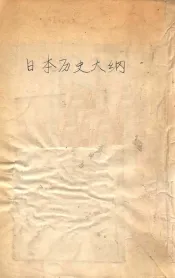 日本历史大纲